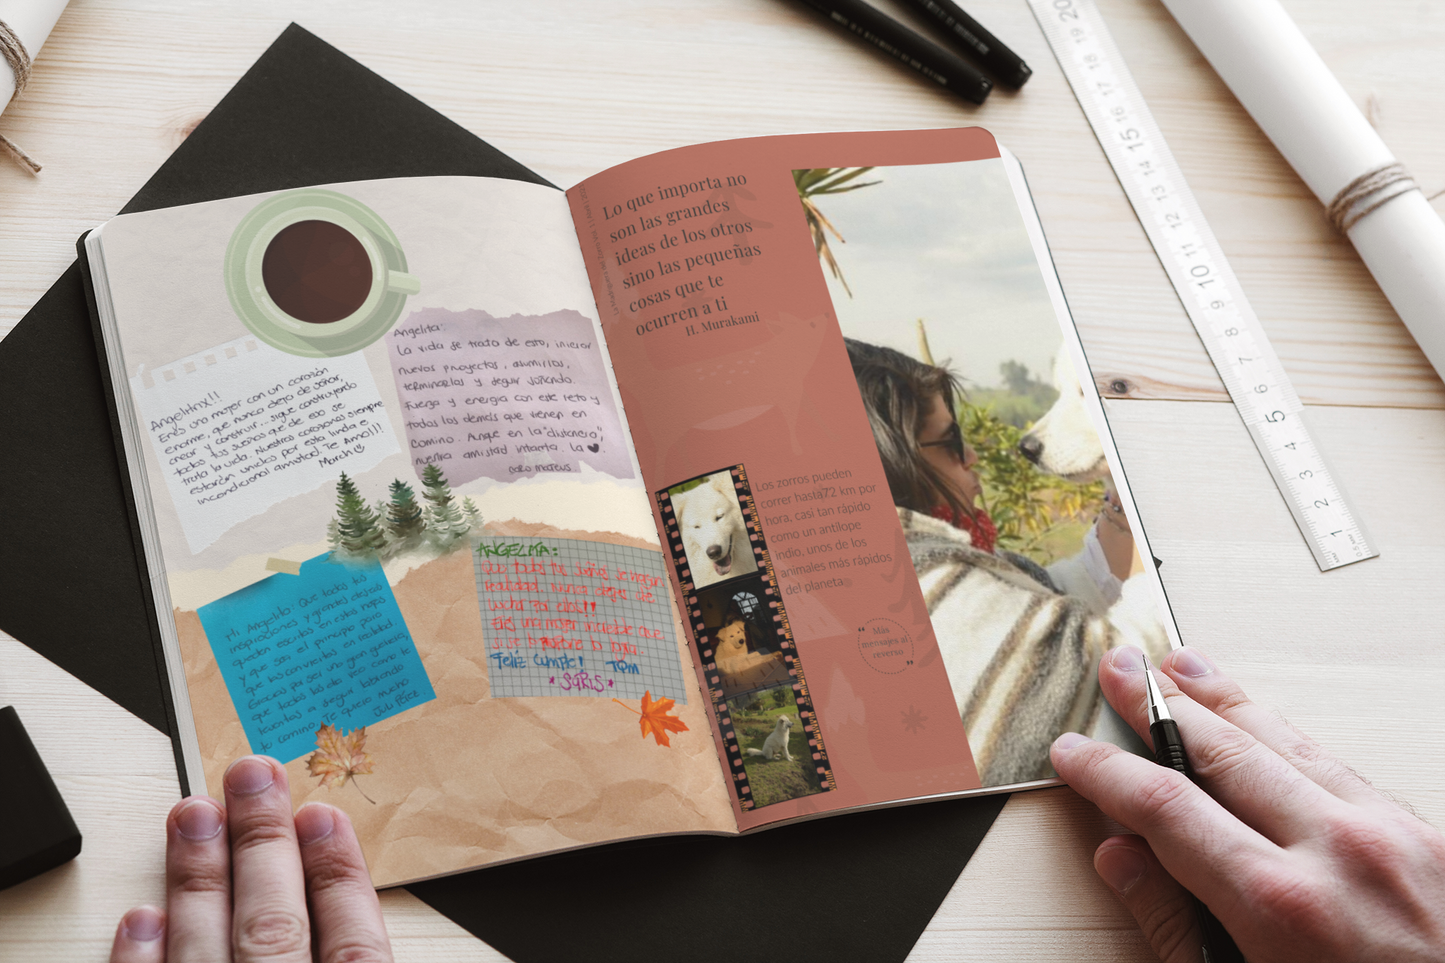 Angelitnx!!
Eres una mujer con un corazón
enorme, que nunca deja de soñar,
crear y construir... sigue construyendo
todos tus sueños que de eso se
trata la vida. Nuestros corazones siempre
estarán unidos por esta linda e
incondicional amistad. Te Amo!!!
March
Angelita:
La vida se trata de esto, iniciar
nuevos proyectos, asumirlos,
terminarlos y seguir soñando.
Fuerza y energía con este reto y
todos los demás que vienen en
camino. Aunque en la "distancia",
nuestra amistad intacta. La
Caro Mateus
Hi Angelita. Que todas tus
inspiraciones y grandes deseos
queden escritas en estas hojas
y que sea el principio para
que las conviertas en realidad.
Gracias por ser una gran guerrera,
que todos los días
a seguir luchando
tu camino. Te quiero mucho
Juli
ANGELITA:
Que todos tus sueños se hagan
realidad. Nunca dejes de
luchar por ellos!!
Eres una mujer increíble que
Feliz Cumple! TQM
*SGRIS*
Lo que importa no
son las grandes
ideas de los otros
sino las pequeñas
cosas que te
ocurren a ti
H. Murakami
Los zorros pueden
correr hasta72 km por
hora, casi tan rápido
como un antílope
indio, unos de los
animales más rápidos
del planeta
“ Más
mensajes al
reverso ”
20 19 18 17 16 15 14 13 12 11 10 9 8 7 6 5 4 3 2 1
0.5 mm